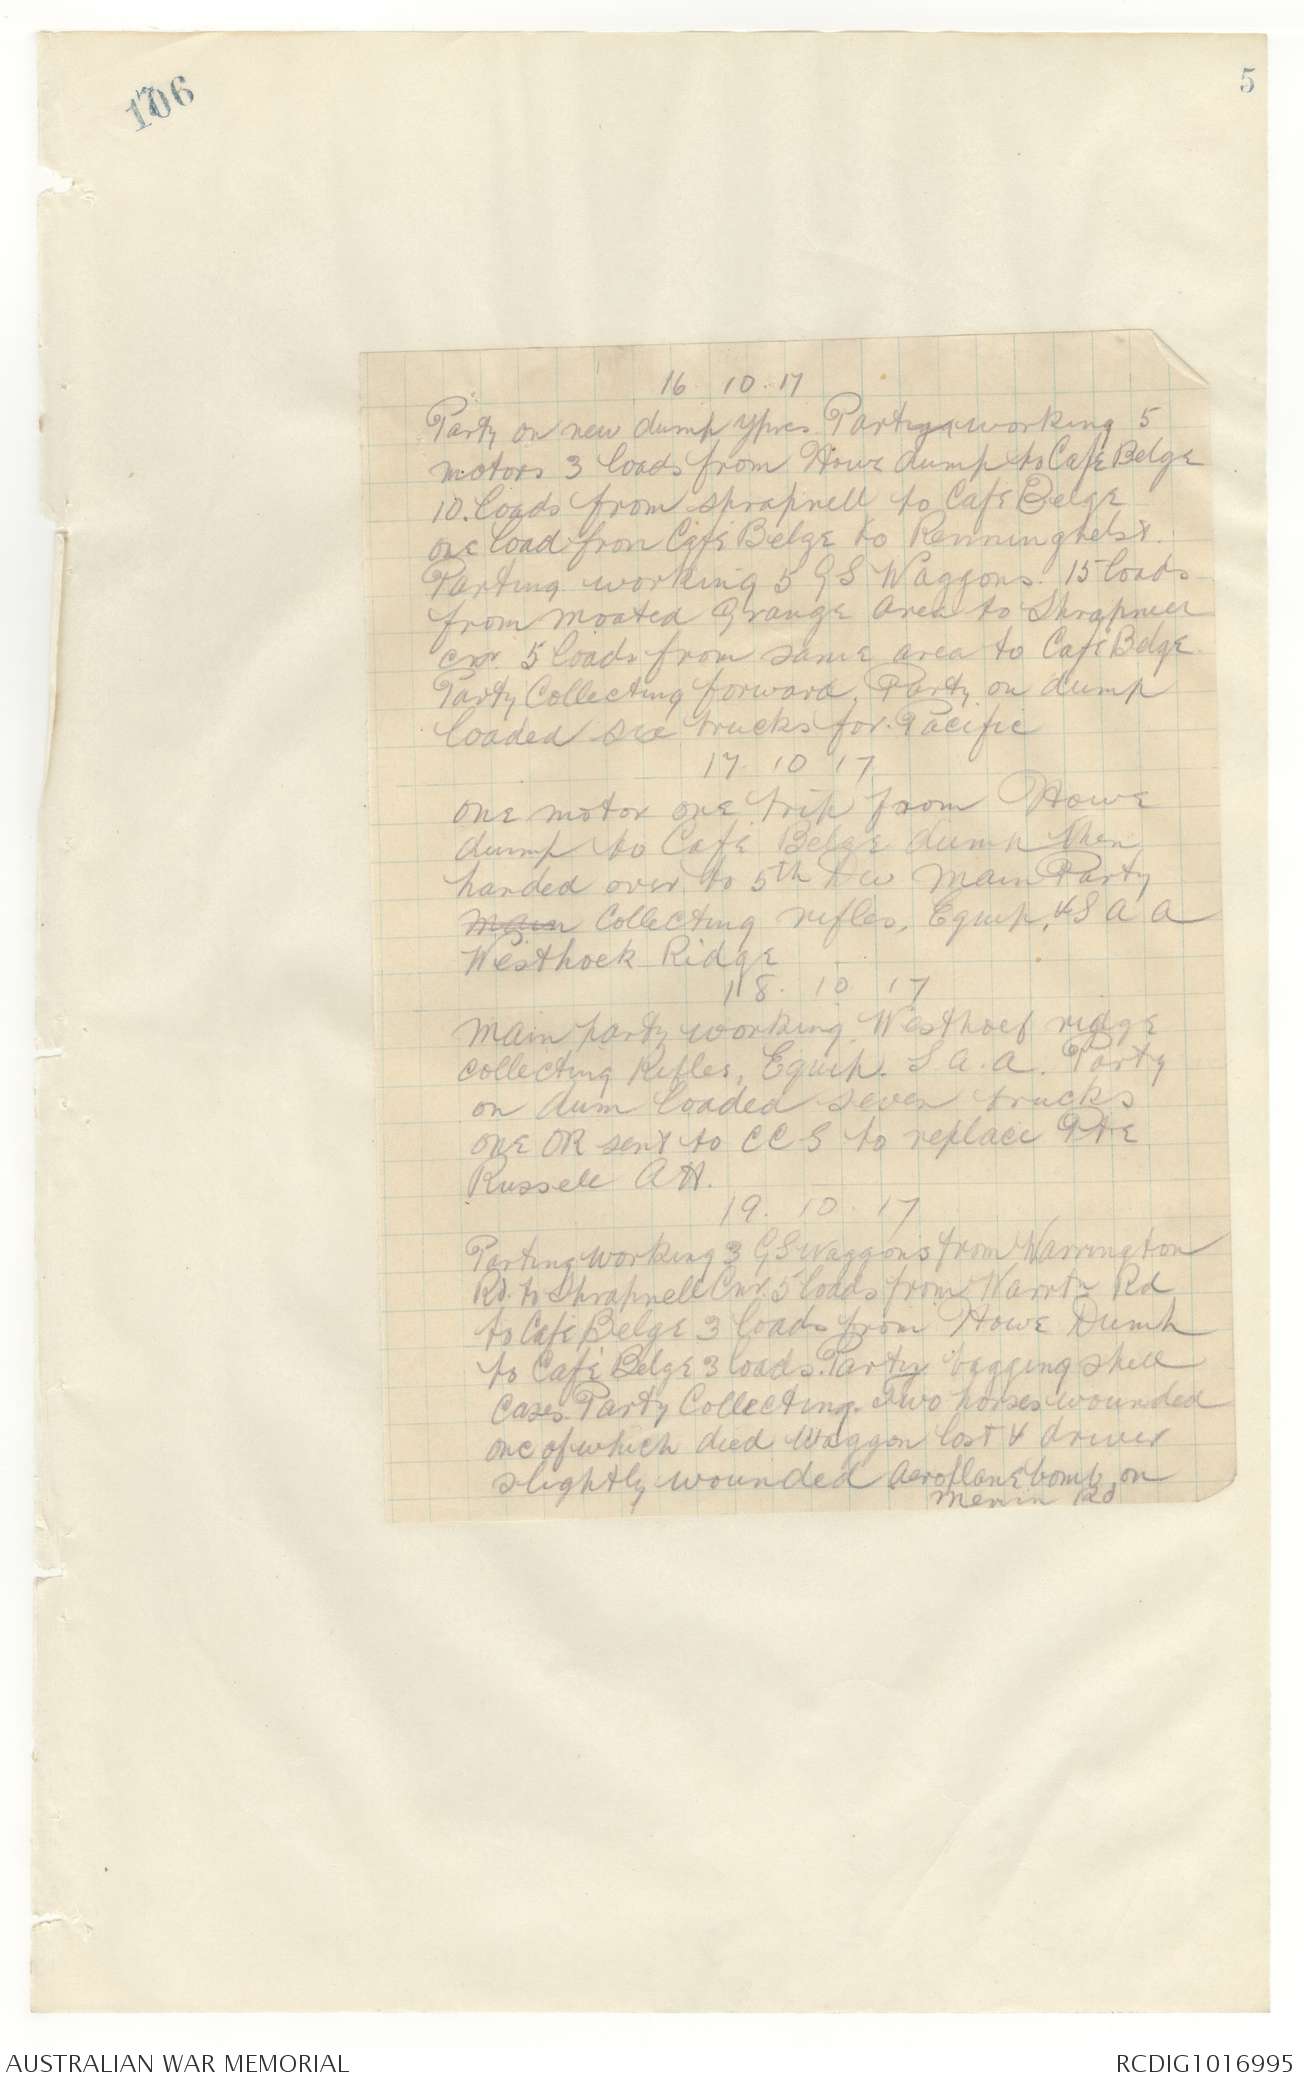 106
5
16. 10. 17
Party on new dump Ypres. Party working 5
motors 3 loads from Howe dump to Café Belge
10. loads from shrapnell to Café Belge
one load from Café Belge to Renninghelst.
Parting working 5 GS Waggons. 15 loads
from Moated Grange Area to Shrapnell
cnr. 5 loads from same area to Café Belge.
Party Collecting forward, Party on dump
loaded six trucks for Pacific
17. 10 17
one motor one trip from Howe
dump to Café Belge dump then
handed over to 5th Div Main Party
main Collecting rifles, Equip, & S A A
Westhoek Ridge
18. 10 17
Main party working Westhoef ridge
collecting Rifles, Equip. S. A. A. Party
on dum loaded seven trucks
one OR sent to CCS to replace Pte
Russell A H.
19. 10. 17
Parting working 3 GS Waggons from Warrington
Rd. to Shrapnell Cnr. 5 loads from Warrtn Rd
to Café Belge 3 loads from Howe Dump
to Café Belge 3 loads. Party bagging shell
cases. Party Collecting. Two horses wounded
one of which died Waggon lost & driver
slightly wounded Aeroplane bomb on
Menin Rd
AUSTRALIAN WAR MEMORIAL
RCDIG1016995